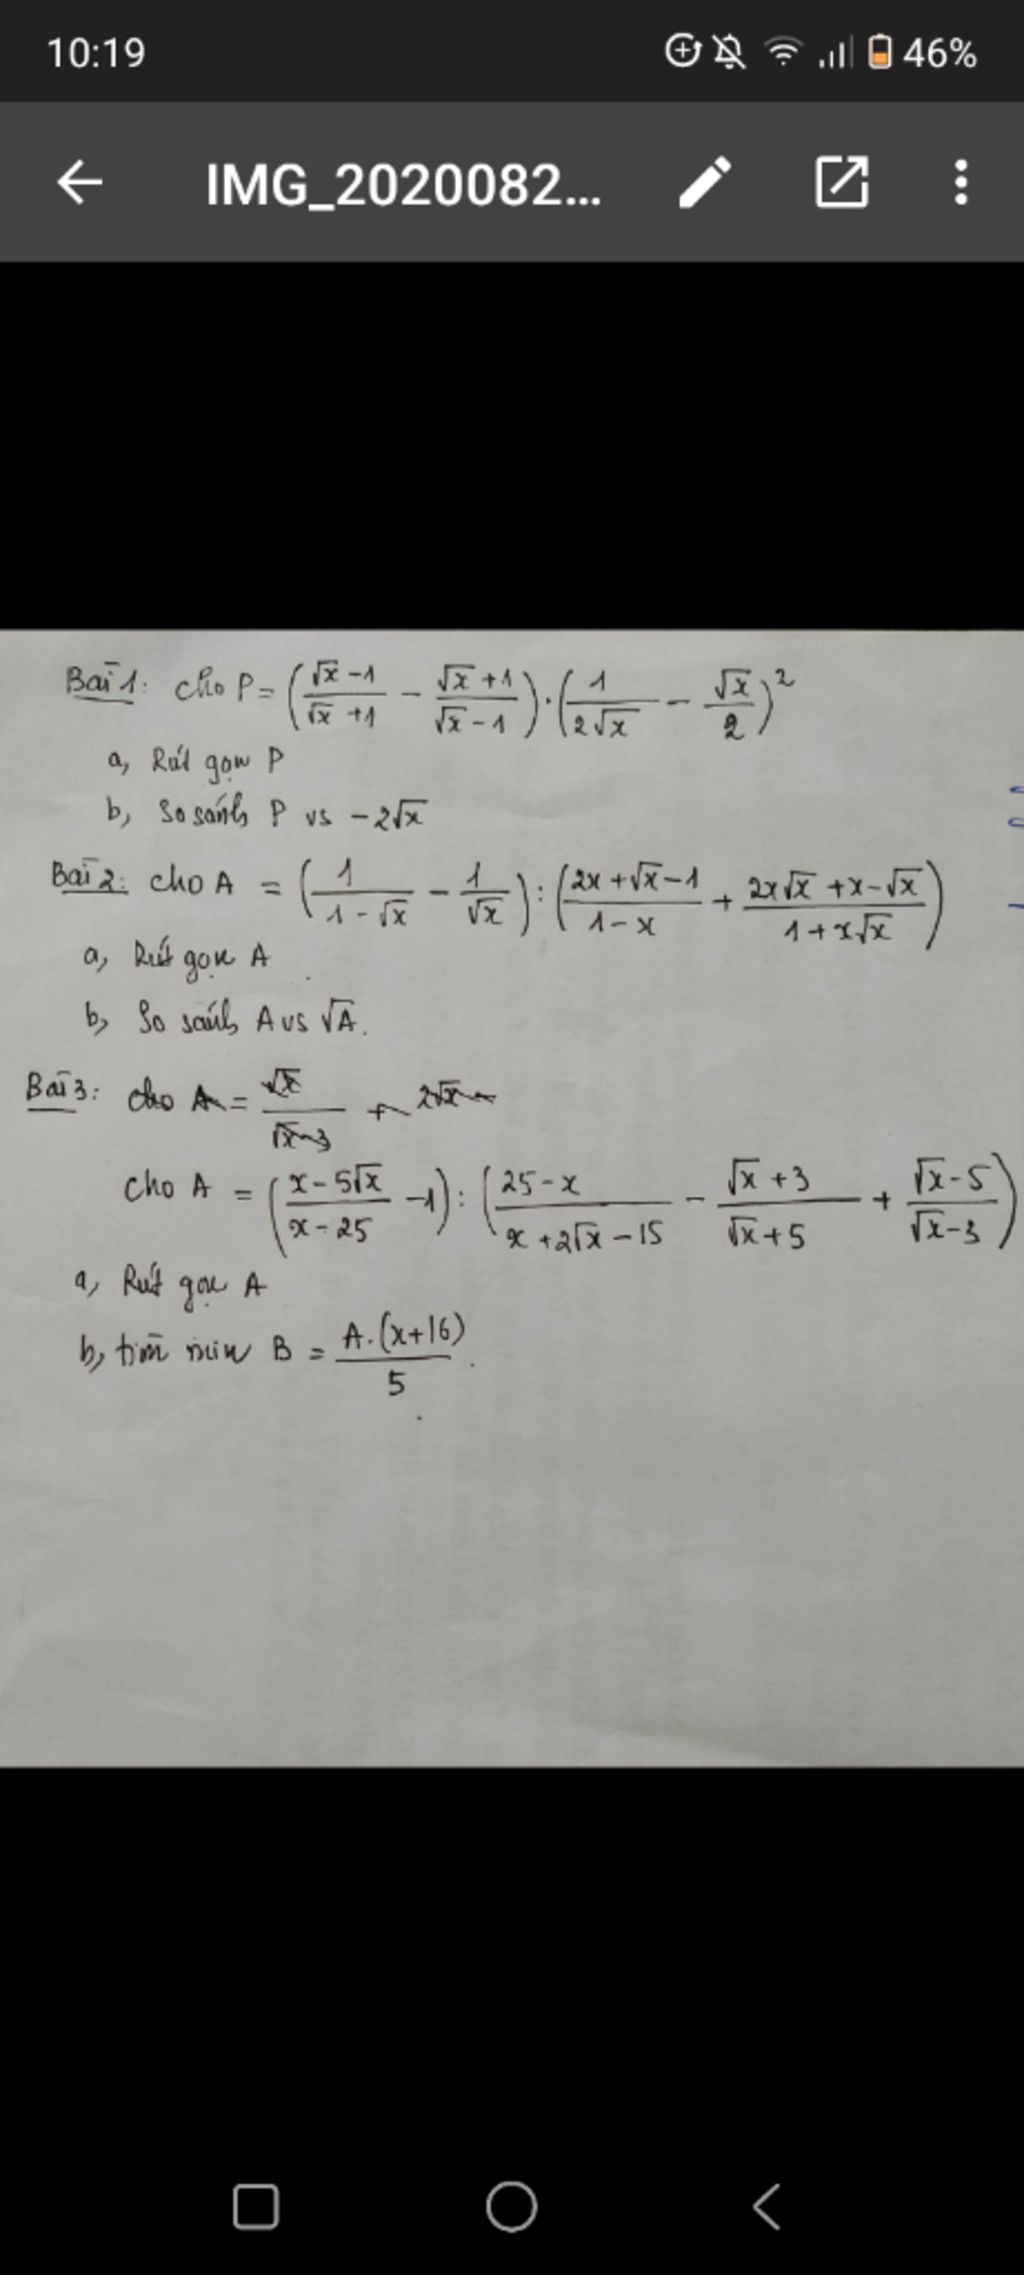 10:19 46%
IMG_2020082...
Bài 1: cho P = ((√x - 1)/(√x + 1) - (√x + 1)/(√x - 1)) . (1/(2√x) - √x/2)²
a, Rút gọn P
b, So sánh P vs -2√x
Bài 2: cho A = (1/(1 - √x) - 1/√x) : ((2x + √x - 1)/(1 - x) + (2x√x + x - √x)/(1 + x√x))
a, Rút gọn A
b, So sánh A vs √A.
Bài 3: cho A = √x/(√x - 3) + 2√x
cho A = ((x - 5√x)/(x - 25) - 1) : ((25 - x)/(x + 2√x - 15) - (√x + 3)/(√x + 5) + (√x - 5)/(√x - 3))
a, Rút gọn A
b, tìm min B = (A.(x+16))/5.